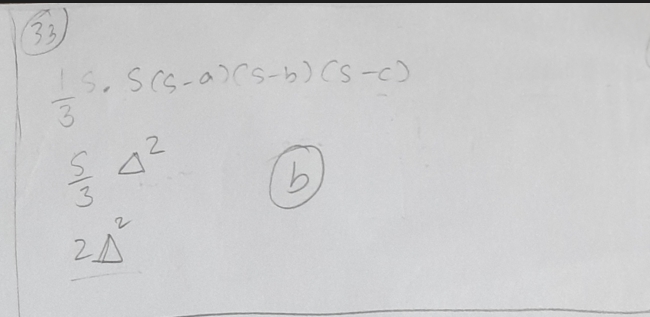 33
1/3 S. S(s-a)(s-b)(s-c)
S/3 Δ²
b
2Δ²